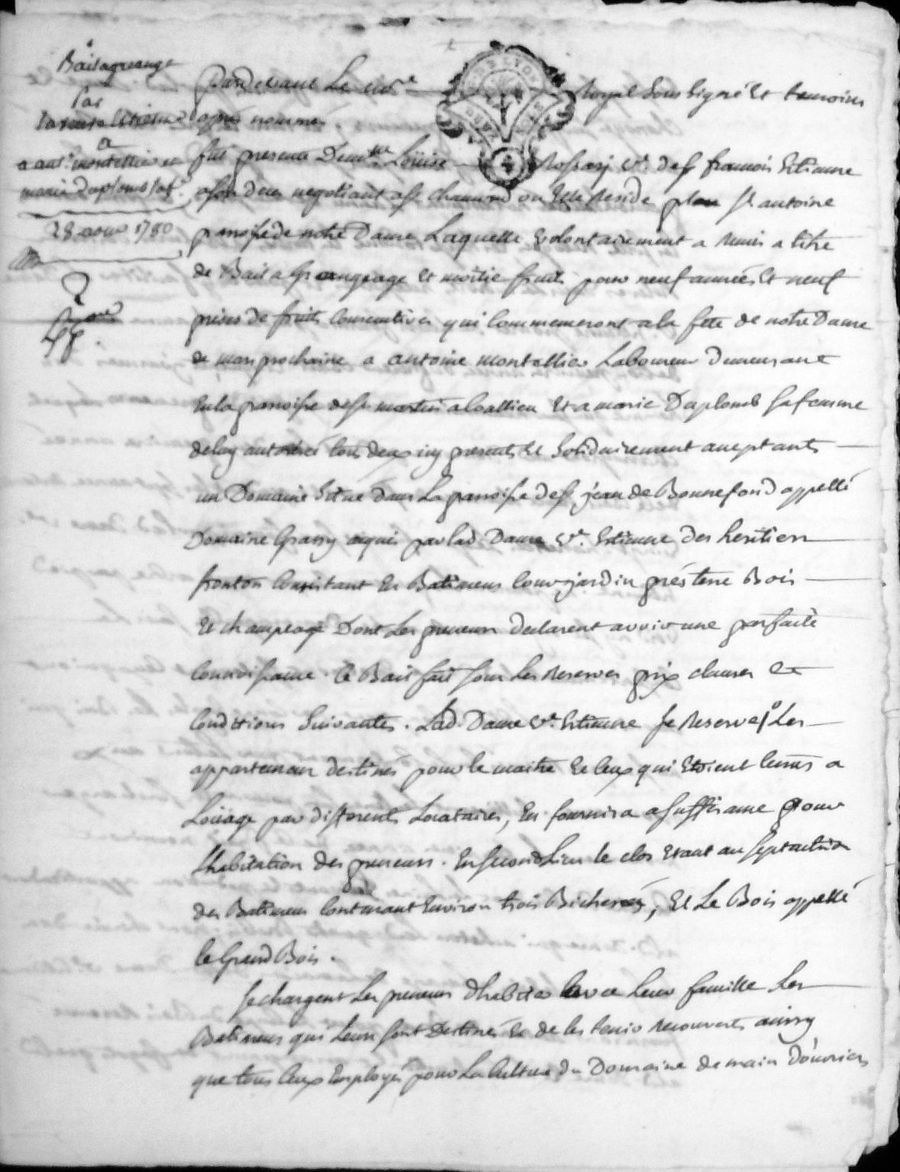 Bail a grangeage
par
la veuve Estienne
a
a ant. montellier et
marie Duplomb sa f.
28 aout 1780
Pardevant Le no.re Royal Soussigné Et temoins
après nommés
fut presente Dem.lle Louise Rossary v.e de s.r francois Estienne
negotiant a s.t chaumond ou Elle Reside place s.t antoine
paroisse de notre Dame Laquelle volontairement a Remis a titre
de Bail a Grangeage Et moitié fruits pour neuf années Et neuf
prises de fruits Consecutives qui Commenceront a la fete de notre Dame
de mars prochaine a antoine montellier Laboureur demeurant
En la paroisse de s.t martin a Coallieu Et a marie Duplomb sa femme
de luy autorisée tous deux icy presents Et Solidairement acceptants
un Domaine Scitué Dans La paroisse de s.t jean de Bonnefond appellé
Domaine Grassy aquis par lad. Dame v.e Estienne des heritiers
fronton Consistant En Batimens Cour jardin prés terre Bois
Et champéage Dont Les preneurs declarent avoir une parfaite
Connoissance. Ce Bail fait sous Les Reserves prix clauses Et
Conditions Suivantes. Lad. Dame v.e Estienne se Reserve 1.o Les
appartemens destinés pour le maitre Et Ceux qui Etoient tenus a
Louage par differents Locataires, En fournira a suffisance pour
L'habitation des preneurs. En second Lieu le clos Etant au septentrion
des Batimens Contenant Environ trois Bicherées, Et Le Bois appellé
le Grand Bois.
Se chargent Les preneurs d'habiter avec Leur famille Les
Batimens qui Leurs sont Destinés Et de les tenir Recouverts ainsy
que tous Ceux Employés pour La Culture du Domaine de main D'ouvriers